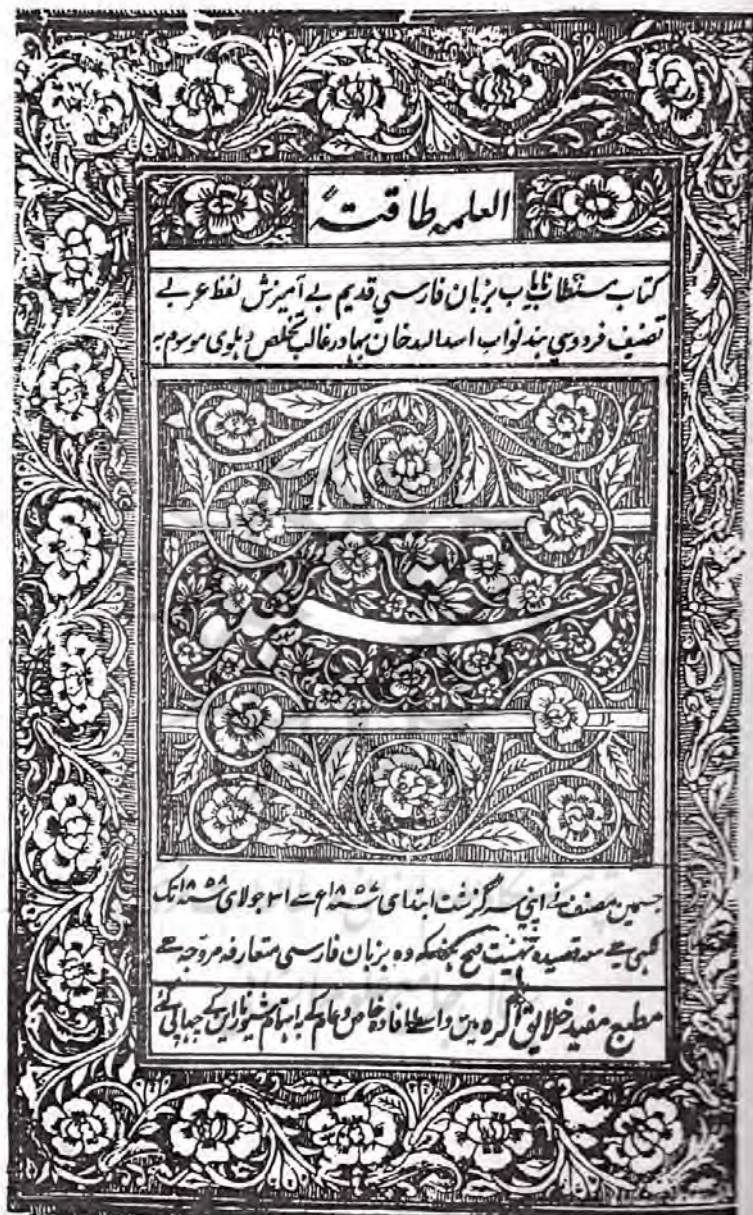 العلمہ طاقتہ
کتاب مستطاب نایاب بزبان فارسی قدیم بے آمیزش لفظ عربے
تصنیف فردوسی ہند نواب اسد اللہ خان بہادر غالب تخلص دہلوی موسوم بہ
دستنبو
جسمین مصنف نے اپنی سرگزشت ابتدای ۱۸۵۷ع سے ۳۱ جولائی ۱۸۵۸ تک
لکہی ہے معہ قصیدہ تہنیت فتح ہند کہ وہ بزبان فارسی متعارفہ مروّجہ ہے
مطبع مفید خلایق آگرہ مین واسطے افادہ خاص و عام کے باہتمام شیوناراین کے چہاپی گئے